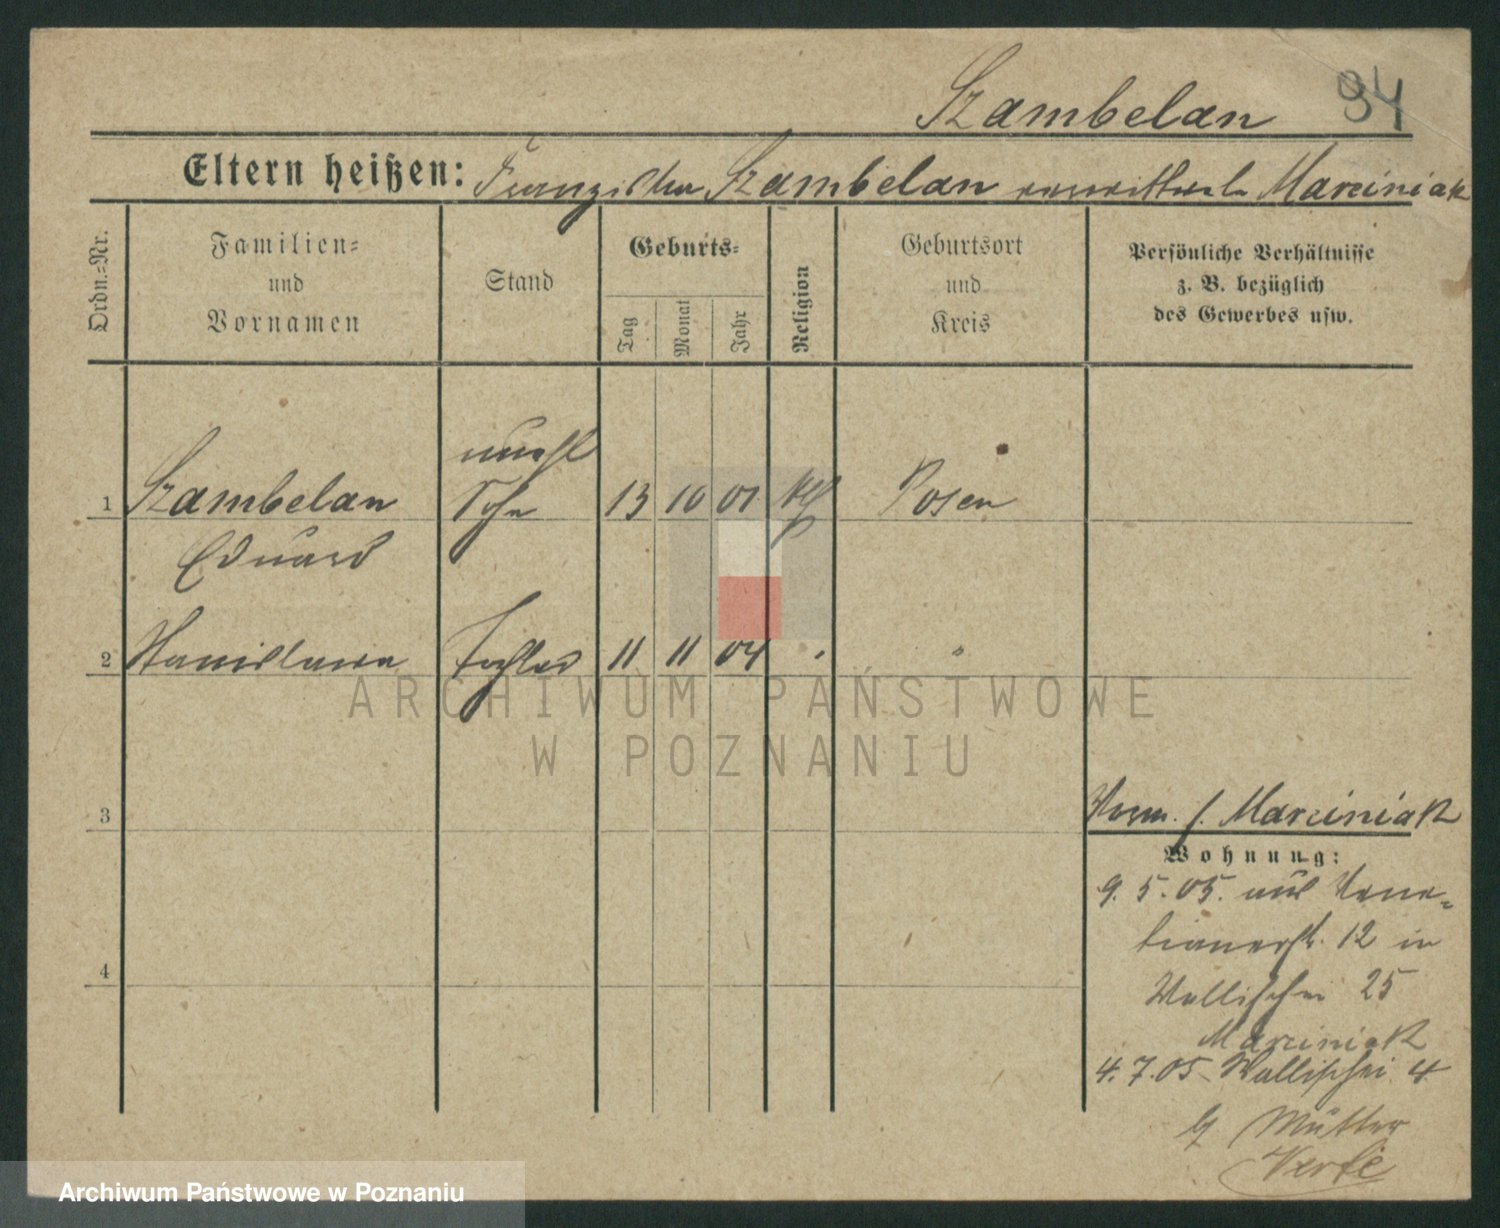 Szambelan 94
Eltern heißen: Franziska Szambelan verwittwete Marciniak
Ordn.=Nr.
Familien=
und
Vornamen
Stand
Geburts=
Tag
Monat
Jahr
Religion
Geburtsort
und
Kreis
Persönliche Verhältnisse
z. B. bezüglich
des Gewerbes usw.
unehl
1 Szambelan Sohn 13 10 01 kth Posen
Eduard
2 Stanislawa Tochter 11 11 04 " "
ARCHIWUM PAŃSTWOWE
W POZNANIU
3
Vorm. f. Marciniak
Wohnung:
9.5.05. aus Vene=
tianerstr. 12 in
4
Wallischei 25
Marciniak
4.7.05 Wallischei 4
b/ Mutter
Archiwum Państwowe w Poznaniu